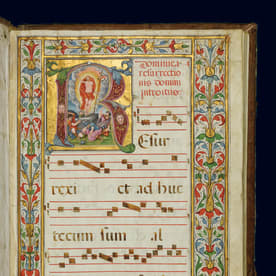 Dominica
resurrectio
nis domini
introitus
R
Esur
rexi et ad huc
tecum sum al